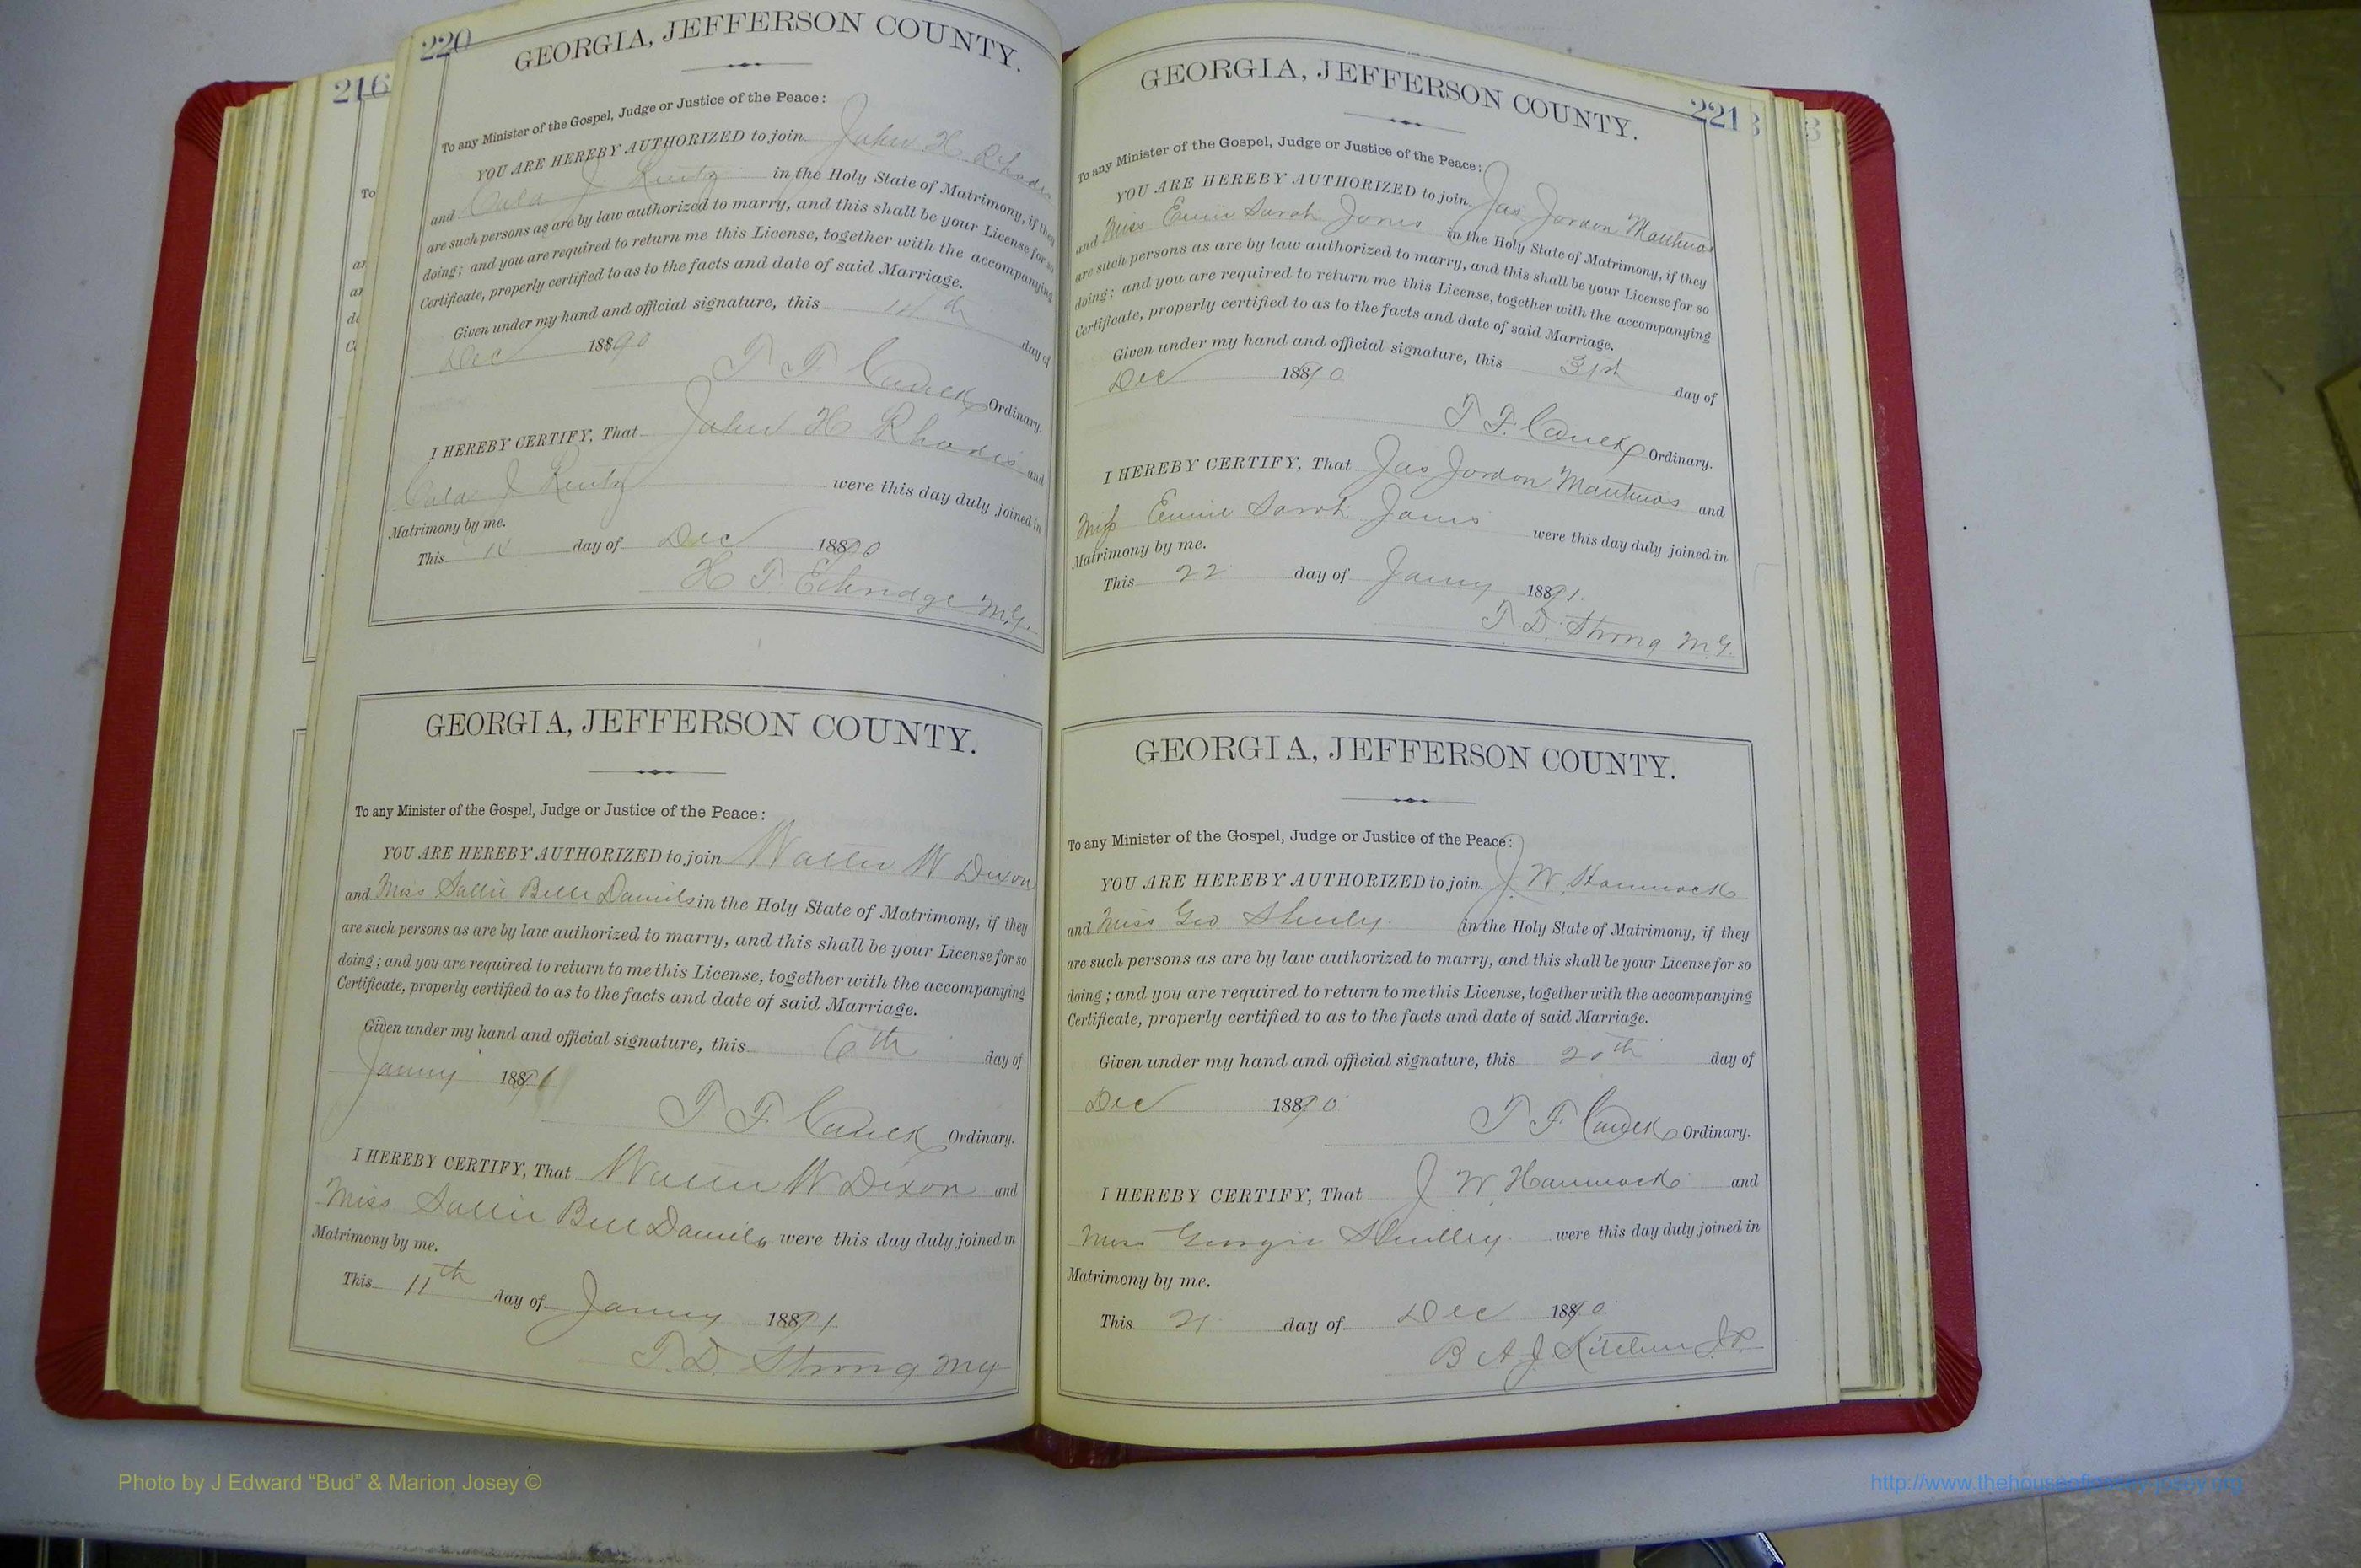 216
To
220
GEORGIA, JEFFERSON COUNTY.
To any Minister of the Gospel, Judge or Justice of the Peace:
YOU ARE HEREBY AUTHORIZED to join John H. Rhodes
and J in the Holy State of Matrimony, if they
are such persons as are by law authorized to marry, and this shall be your License for so
doing; and you are required to return me this License, together with the accompanying
Certificate, properly certified to as to the facts and date of said Marriage.
Given under my hand and official signature, this 14th day of
Dec 1890
T F Ordinary.
I HEREBY CERTIFY, That John H Rhodes and
J were this day duly joined in
Matrimony by me.
This 14 day of Dec 1890
H T. Ethridge M.G.
GEORGIA, JEFFERSON COUNTY.
To any Minister of the Gospel, Judge or Justice of the Peace:
YOU ARE HEREBY AUTHORIZED to join Walter W Dixon
and Miss Sallie Bell Daniels in the Holy State of Matrimony, if they
are such persons as are by law authorized to marry, and this shall be your License for so
doing; and you are required to return to me this License, together with the accompanying
Certificate, properly certified to as to the facts and date of said Marriage.
Given under my hand and official signature, this 6th day of
Janny 1891
T F Ordinary.
I HEREBY CERTIFY, That Walter W Dixon and
Miss Sallie Bell Daniels were this day duly joined in
Matrimony by me.
This 11th day of Janny 1891
T. D. Strong MG
221
GEORGIA, JEFFERSON COUNTY.
To any Minister of the Gospel, Judge or Justice of the Peace:
YOU ARE HEREBY AUTHORIZED to join Jas Jordon Matthews
and Miss Sarah Jones in the Holy State of Matrimony, if they
are such persons as are by law authorized to marry, and this shall be your License for so
doing; and you are required to return me this License, together with the accompanying
Certificate, properly certified to as to the facts and date of said Marriage.
Given under my hand and official signature, this 31st day of
Dec 1890
T F. Ordinary.
I HEREBY CERTIFY, That Jas Jordon Matthews and
Miss Sarah Jones were this day duly joined in
Matrimony by me.
This 22 day of Janny 1891.
T D. Strong M.G.
GEORGIA, JEFFERSON COUNTY.
To any Minister of the Gospel, Judge or Justice of the Peace:
YOU ARE HEREBY AUTHORIZED to join J. W. Hammock
and Miss Geo in the Holy State of Matrimony, if they
are such persons as are by law authorized to marry, and this shall be your License for so
doing; and you are required to return to me this License, together with the accompanying
Certificate, properly certified to as to the facts and date of said Marriage.
Given under my hand and official signature, this 20th day of
Dec 1890
T F Ordinary.
I HEREBY CERTIFY, That J W. Hammock and
Miss Georgie were this day duly joined in
Matrimony by me.
This 21 day of Dec 1890
B A J Kitchen J.P.
Photo by J Edward “Bud” & Marion Josey ©